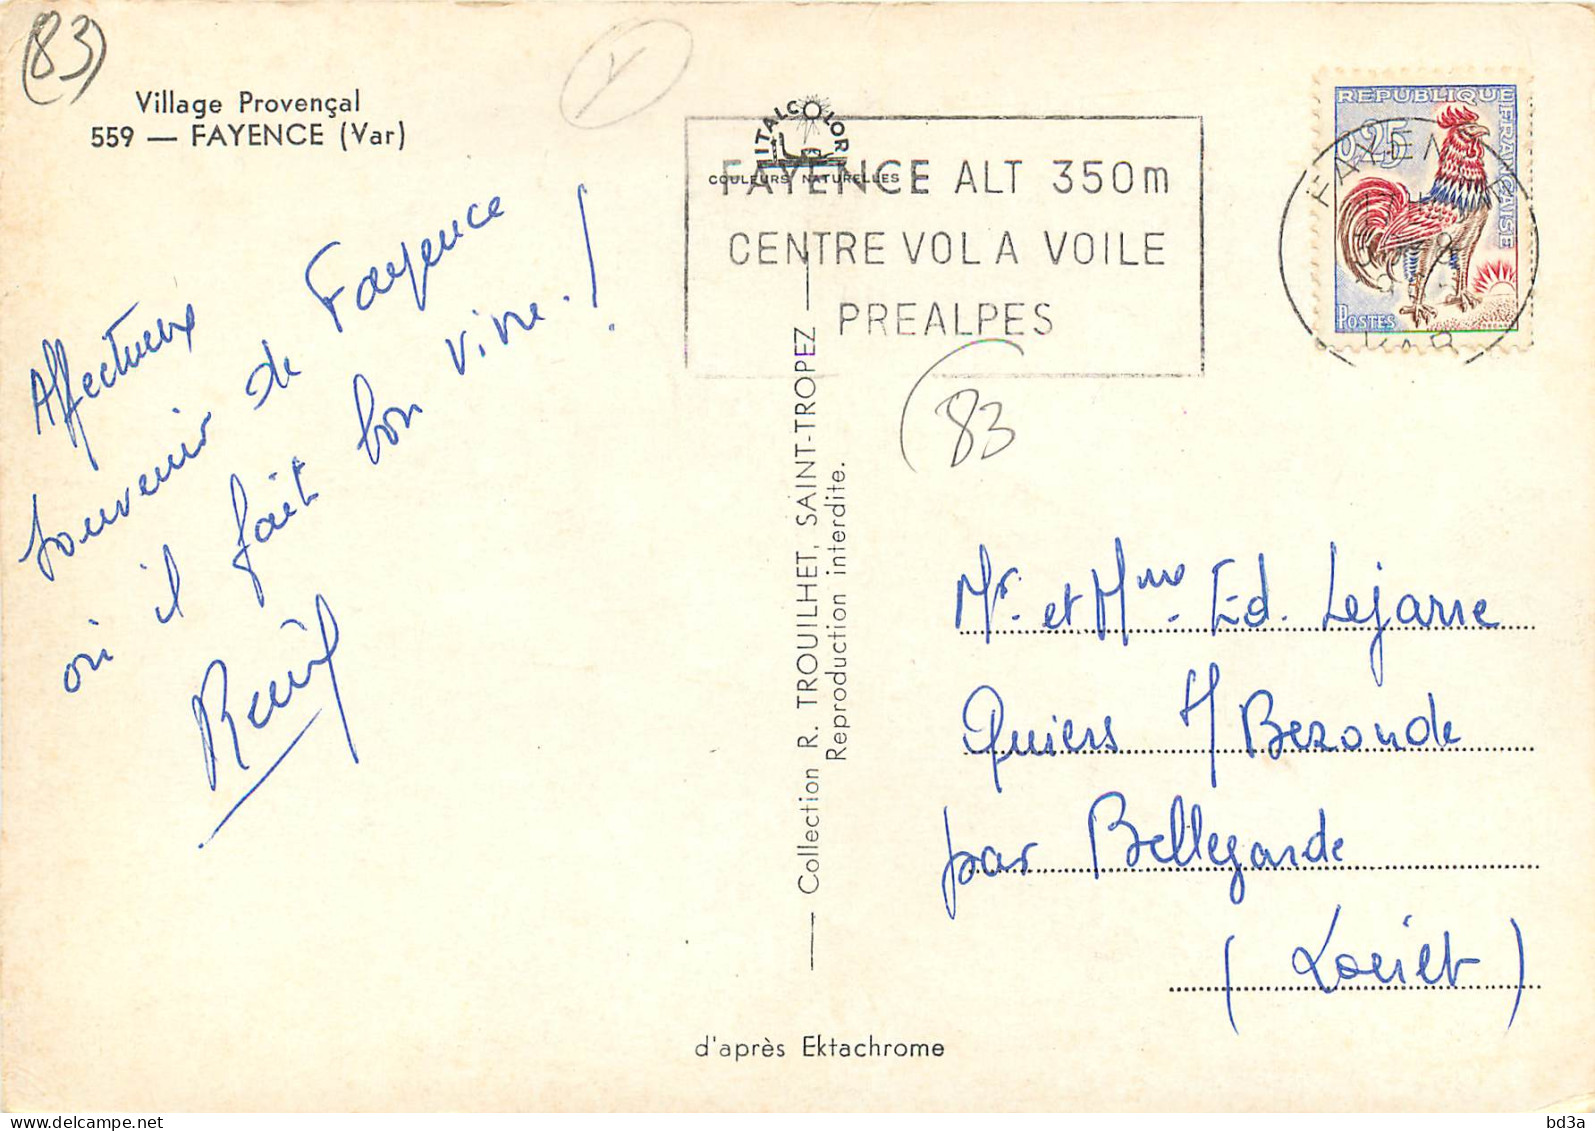 (83)
Village Provençal
559 — FAYENCE (Var)
Affectueux
souvenir de Fayence
où il fait bon vivre !
ITALCOLOR
COULEURS NATURELLES
FAYENCE ALT 350m
CENTRE VOL A VOILE
PREALPES
REPUBLIQUE FRANÇAISE
0,25
POSTES
FAYENCE
VAR
83
Collection R. TROUILHET, SAINT-TROPEZ
Reproduction interdite.
Mr. et Mme. Ed. Lejarre
Quiers s/ Bezonde
par Bellegarde
(Loiret)
d'après Ektachrome
delcampe.net
bd3a